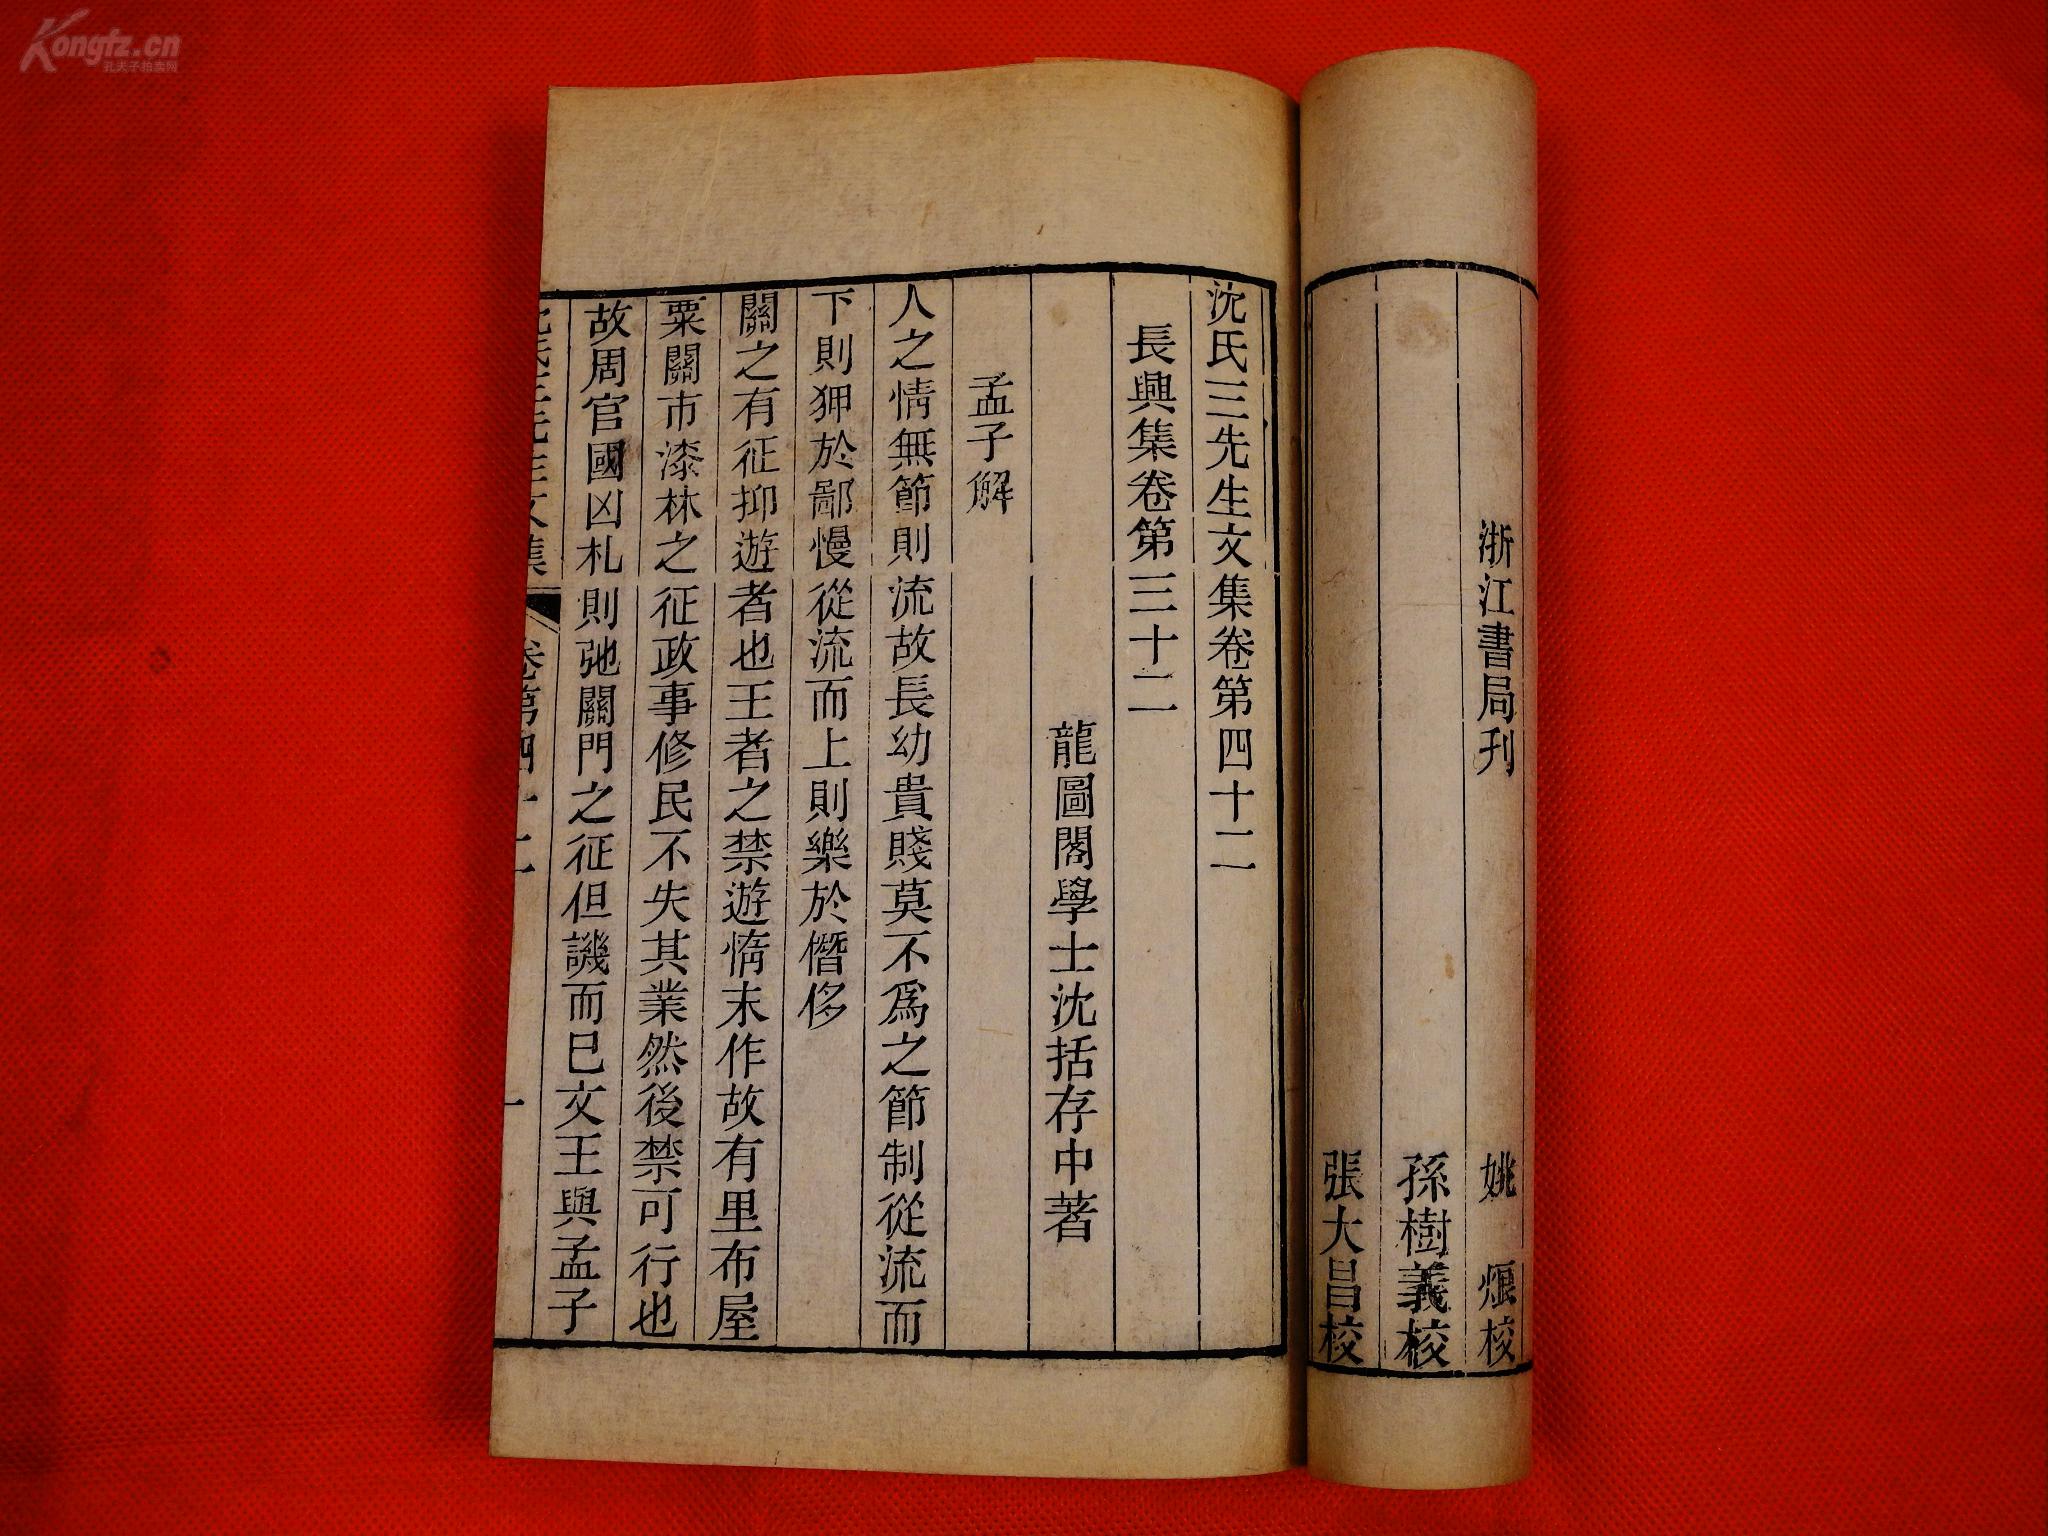 Kongfz.cn
孔夫子拍卖网
浙江書局刊
姚 校
孫樹義校
張大昌校
沈氏三先生文集卷第四十二
長興集卷第三十二
龍圖閣學士沈括存中著
孟子解
人之情無節則流故長幼貴賤莫不爲之節制從流而
下則狎於鄙慢從流而上則樂於僭侈
關之有征抑遊者也王者之禁遊惰末作故有里布屋
粟關市漆林之征政事修民不失其業然後禁可行也
故周官國凶札則弛關門之征但譏而已文王與孟子
沈氏三先生文集 卷第四十二 一